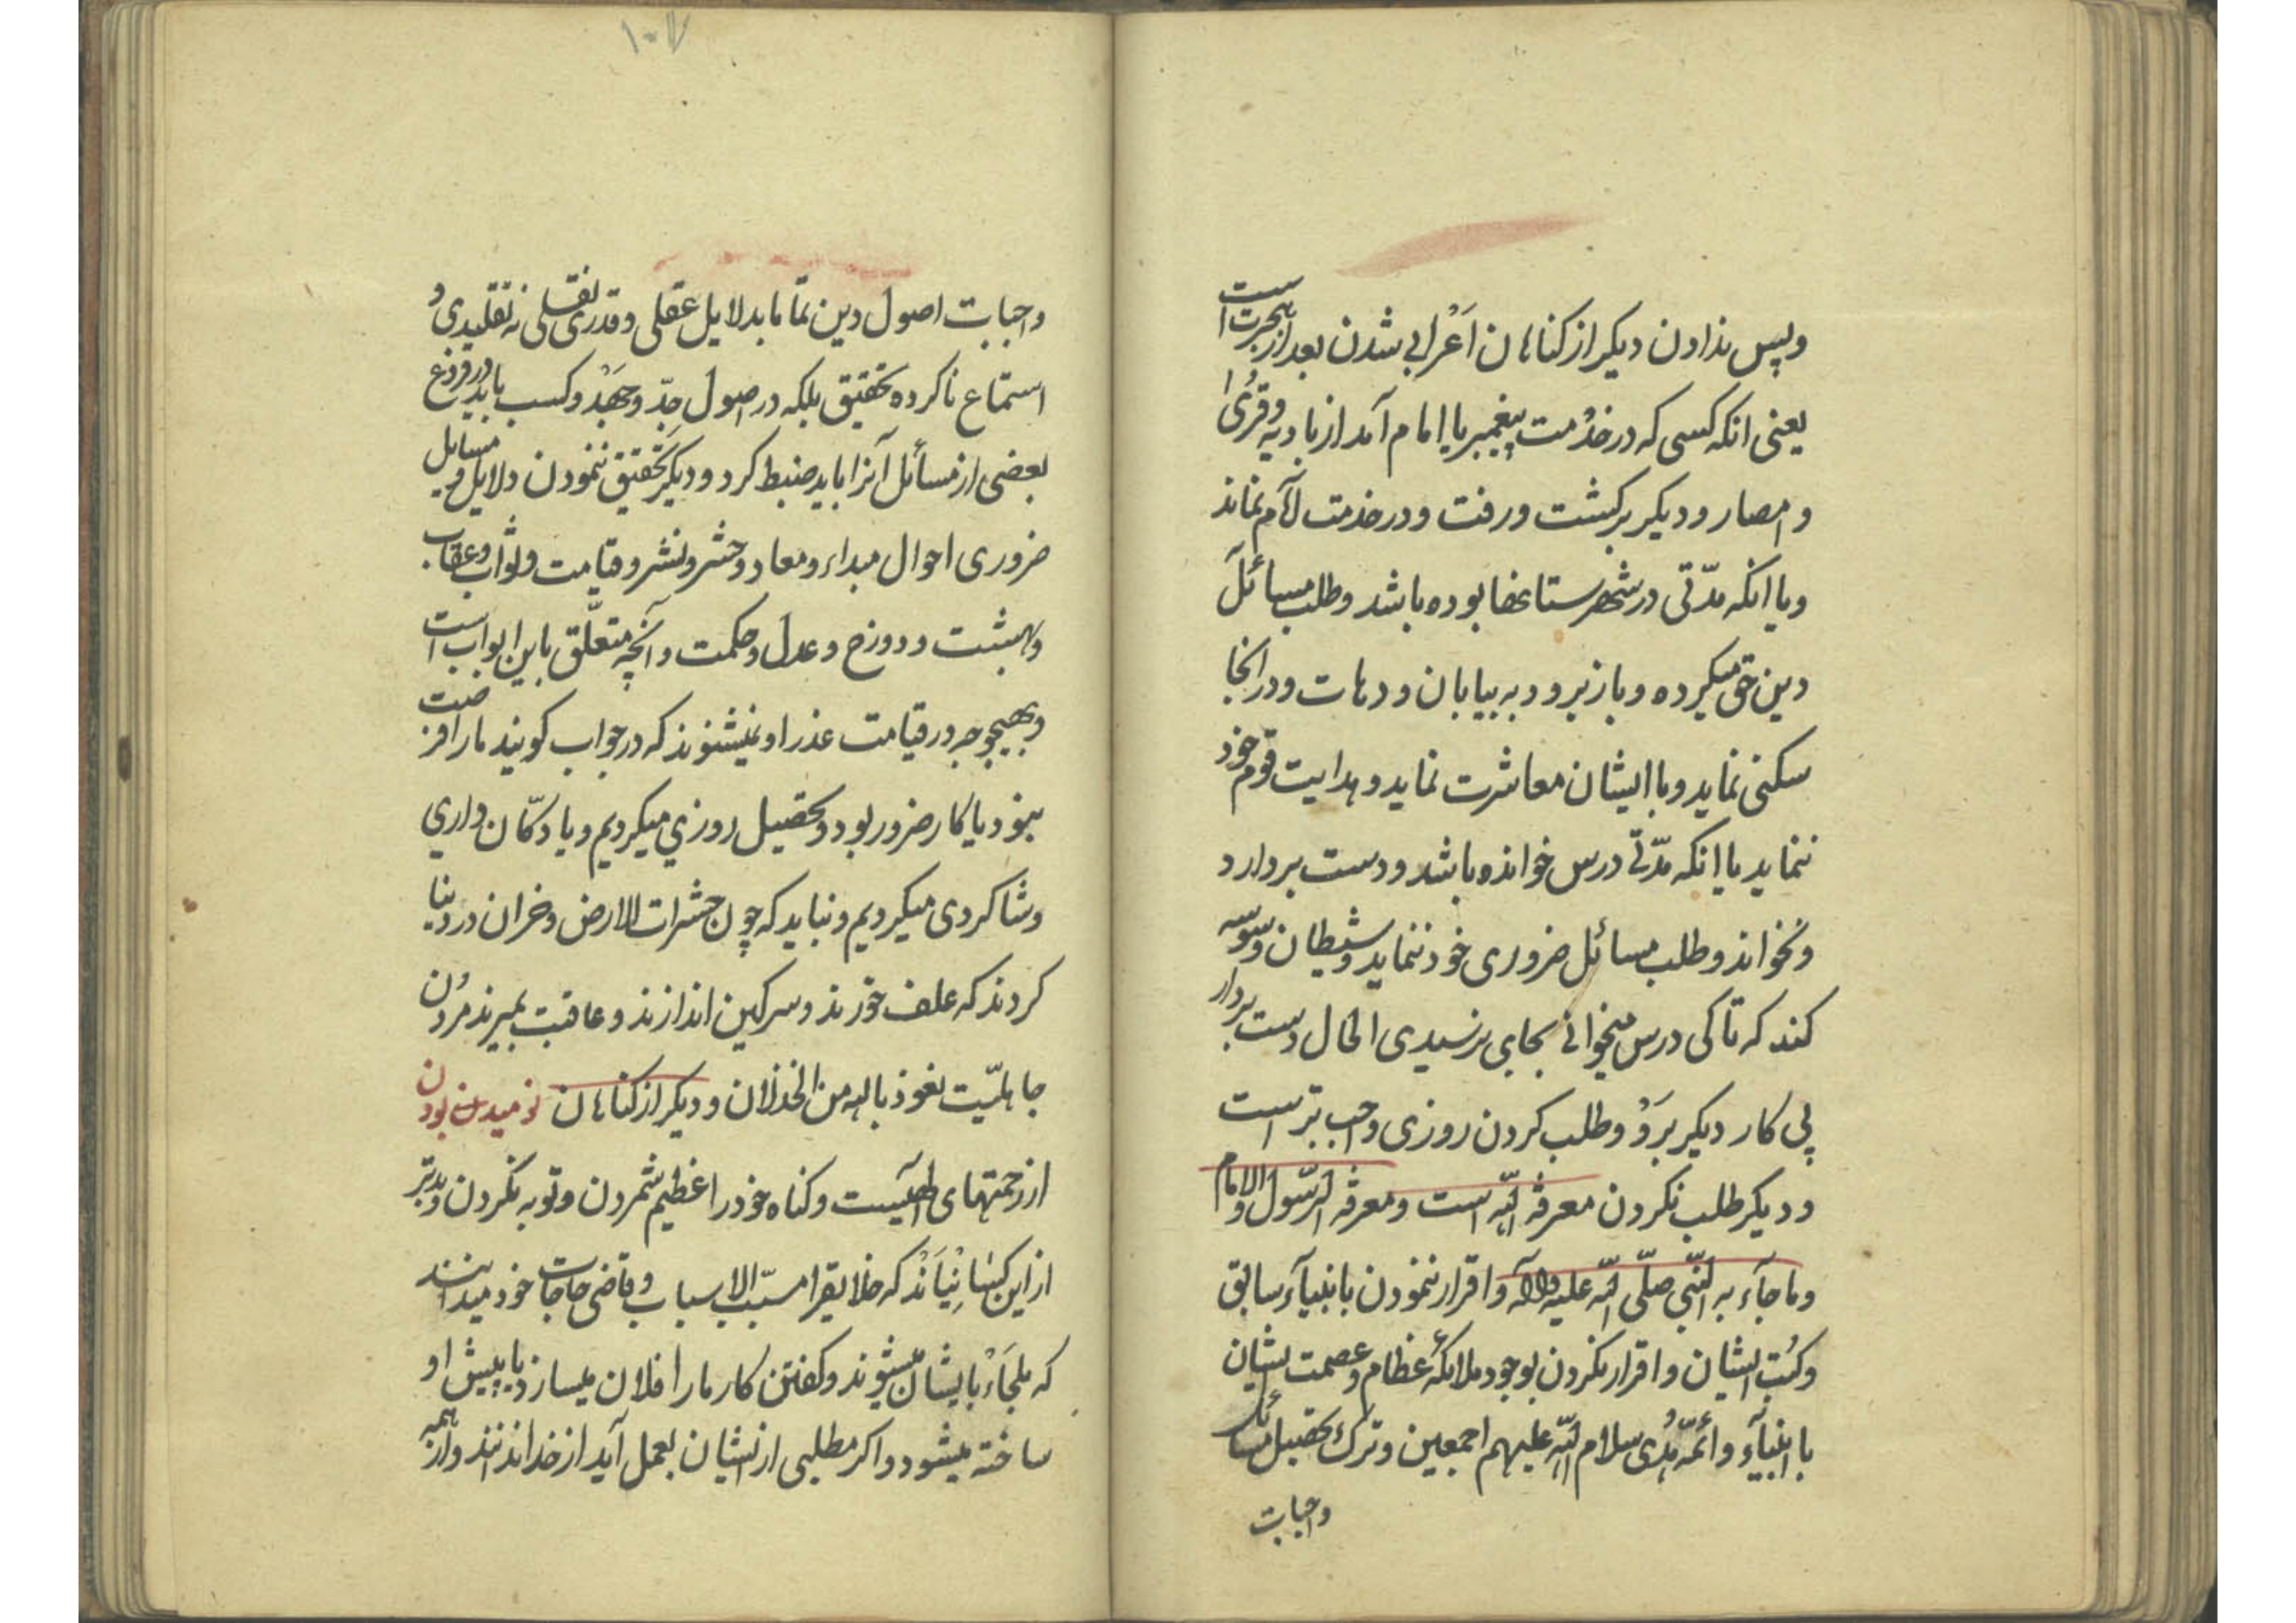 وپس ندادن دیکر از کناهان اَعْرابی شدن بعد از هجرت است
یعنی انکه کسی که در خدْمت پیغمبر یا امام آمد از بادیه وقرُیٰ
و امصار ودیکر برکشت ورفت ودر خدمت امام نماند
ویا انکه مدّتی در شهرستانها بوده باشد وطلب مسائل
دین حق میکرده وباز برود به بیابان ودهات ودر انجا
سکنی نماید وبا ایشان معاشرت نماید وهدایت قوم خود
ننماید یا انکه مدّتی درس خوانده باشد ودست بردارد
ونخواند وطلب مسائل ضروری خود ننماید وشیطان وسوسه
کند که تا کی درس میخوانی بجایی نرسیدی الحال دست بردار
پی کار دیکر برَوْ وطلب کردن روزی واجب تر است
ودیکر طلب نکردن معرفة اللّه است ومعرفة الرّسول والامام
وما جآء به النّبی صلّی اللّه علیه وآله واقرار ننمودن بانبیآء سابق
وکتُب ایشان واقرار نکردن بوجود ملائکهٔ عظام وعصمت ایشان
با انبیآء وائمّهٔ هُدی سلام اللّه علیهم اجمعین وترک تحصیل مسائل
واجبات
۱۰۷
واجبات اصول دین تمّاما بدلایل عقلی وقدری نقلی نه تقلیدی و
استماع ناکرده تحقیق بلکه در اصول جدّ وجَهْد وکسب باید در فروع
بعضی از مسائل آنرا باید ضبط کرد ودیکر تحقیق ننمودن دلایل ومسایل
ضروری احوال مبداء ومعاد وحشر ونشر وقیامت وثواب وعقاب
وبهشت ودوزخ وعدل وحکمت وآنچه متعلّق باین ابواب است
وبهیچوجه در قیامت عذر او نمیشنوند که در جواب کویند مارا فرصت
نبود یا کار ضرور بود وتحصیل روزی میکردیم ویا دکّان داری
وشاکردی میکردیم ونباید که چون حشرات الارض وخران در دنیا
کردند که علف خورند وسرکین اندازند وعاقبت بمیرند مردُن
جاهلیّت نعوذ بالله من الخذلان ودیکر از کناهان نومیدن بودن
از رحمتهای الهیست وکناه خود را عظیم شمردن وتوبه نکردن وبدتر
از این کسانْیَنْد که خلایق را مسبّب الاسباب وقاضی حاجات خود میدانند
که ملجَاءْ بایشان میشوند وکفتن کار ما را فلان میسازد یا پیش او
ساخته میشود واکر مطلبی از ایشان بعمل آید از خدا ندانند واز همه